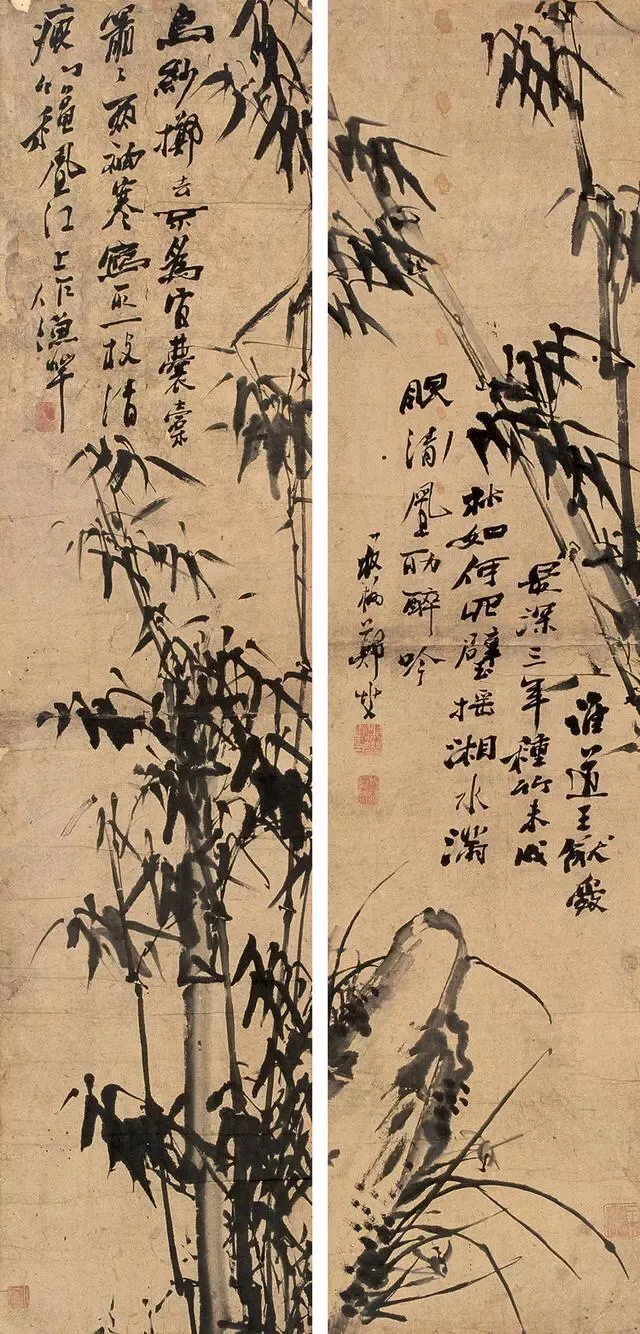 誰道王猷愛
最深三年種竹未成
林如何咫璧搖湘水滿
眼清風助醉吟
板橋鄭燮
烏紗擲去不為官囊橐
蕭蕭兩袖寒寫取一枝清
瘦竹秋風江上作漁竿